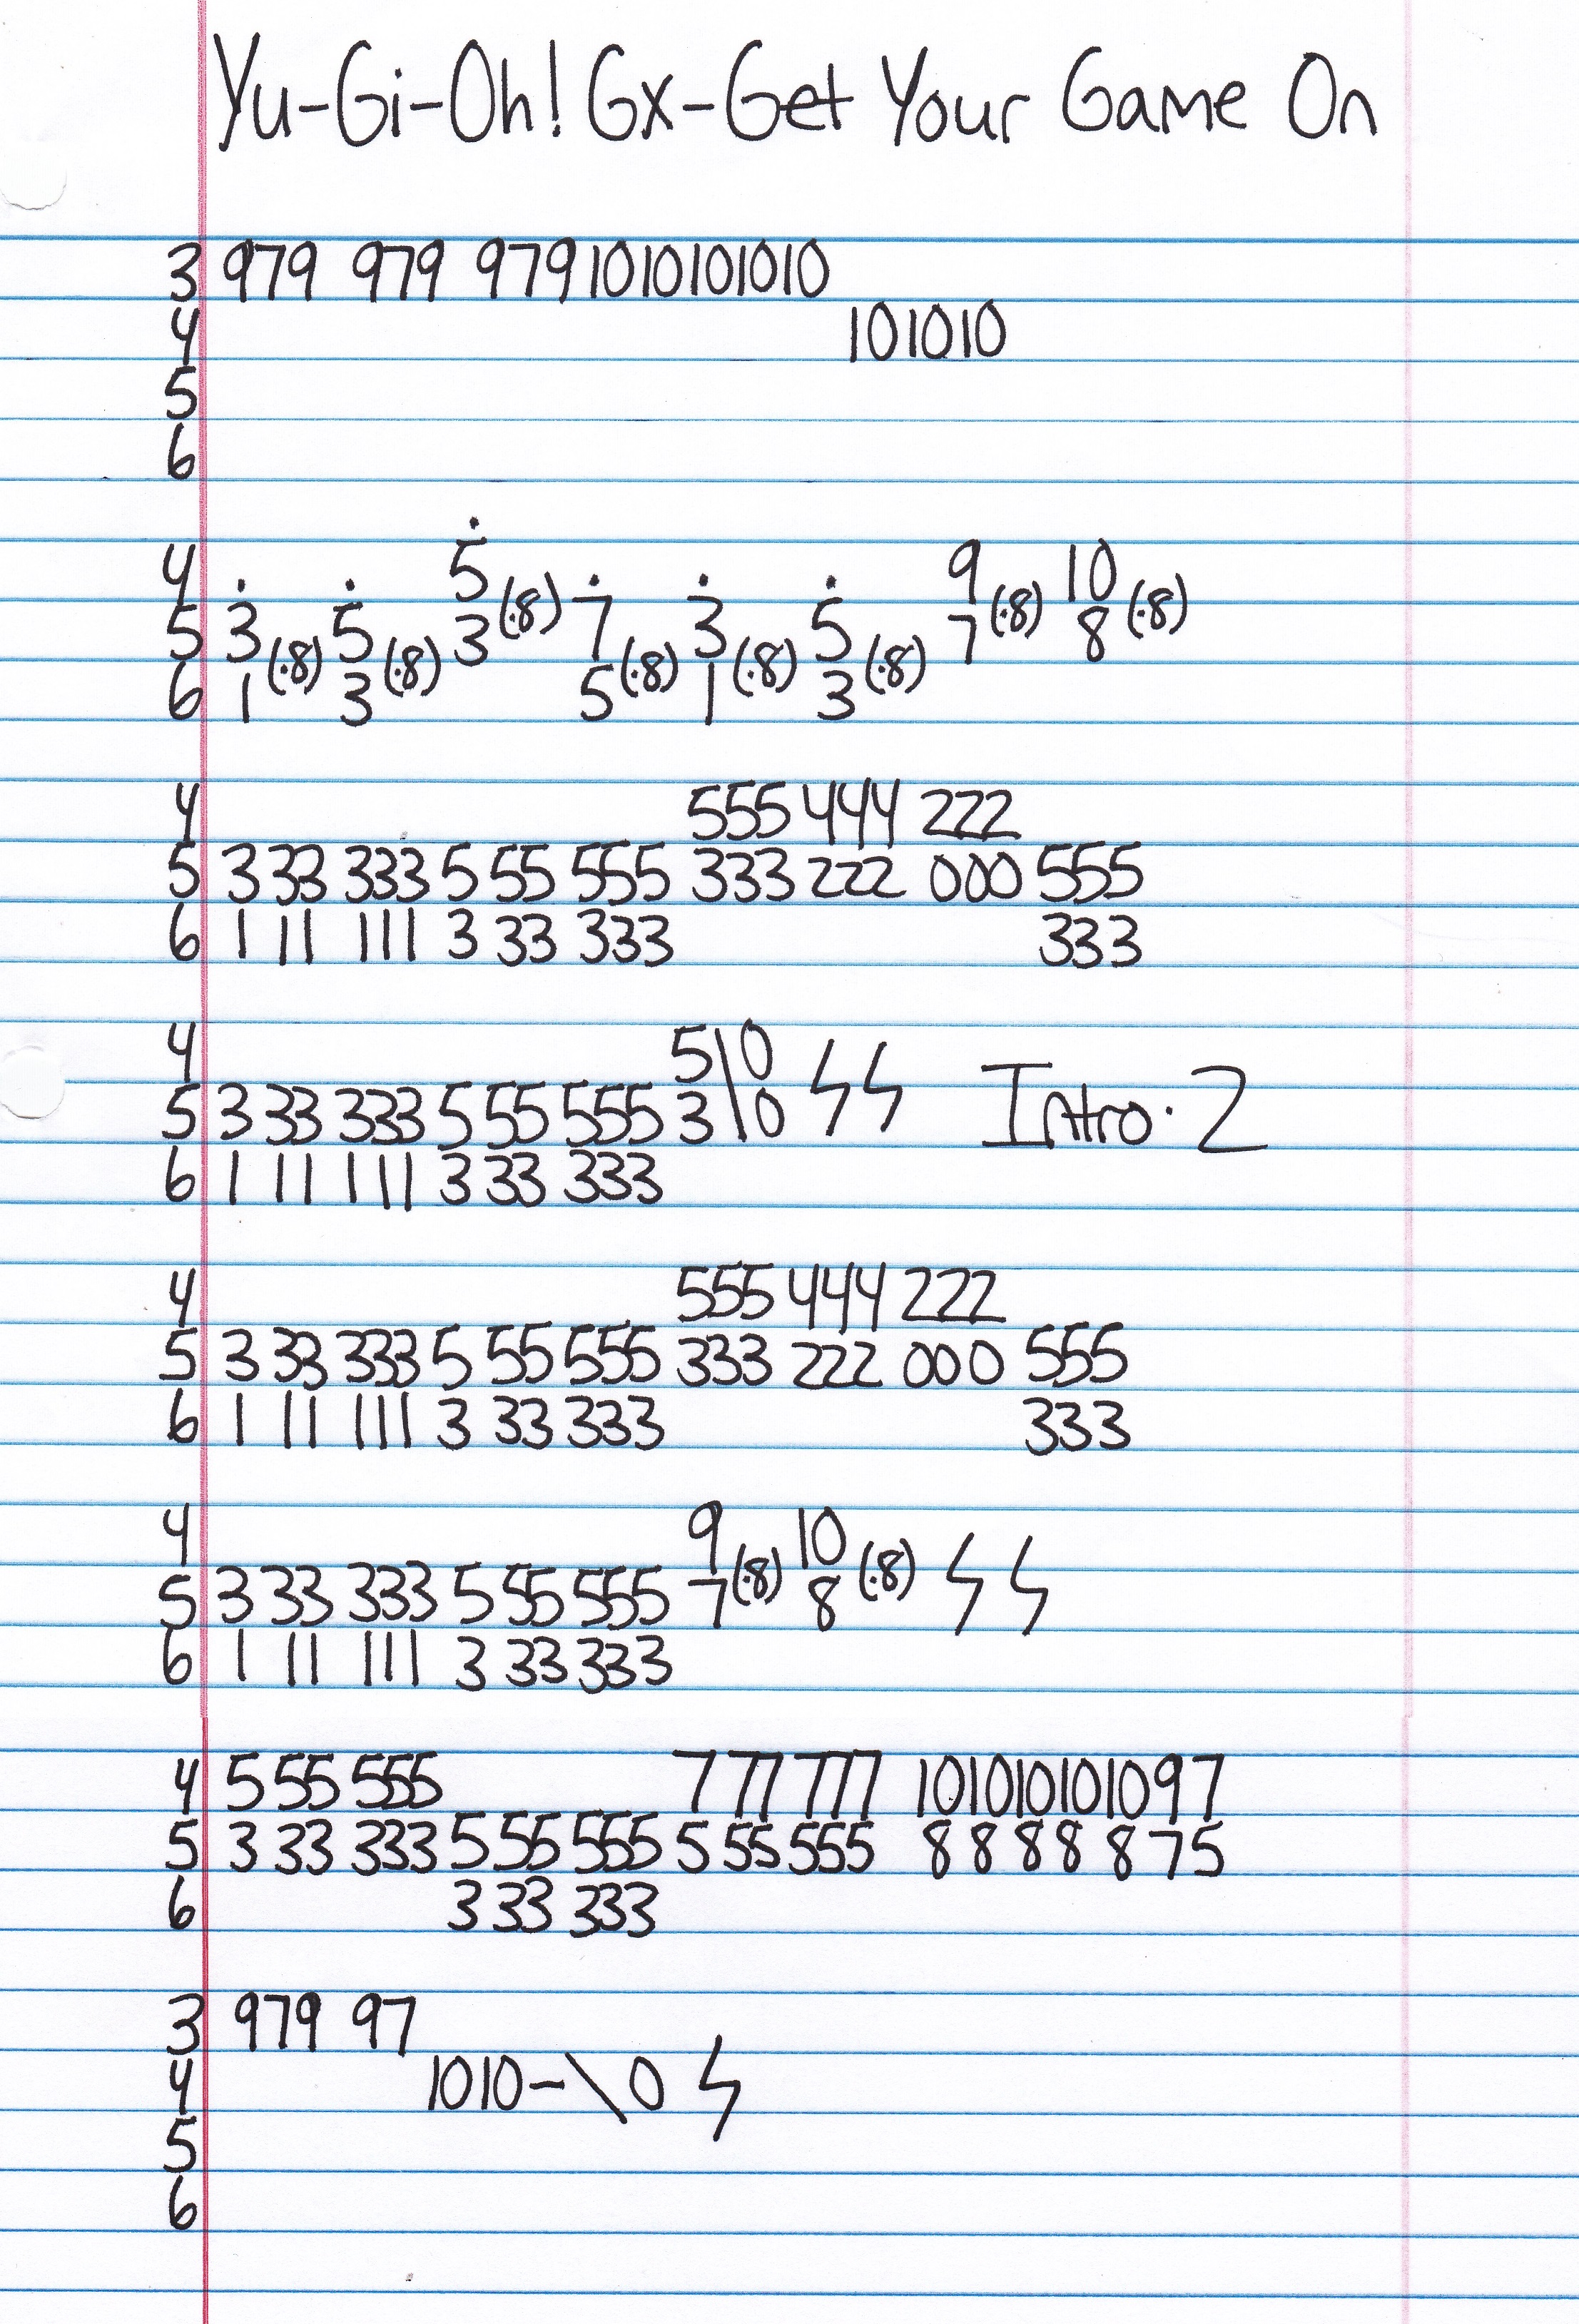 Yu-Gi-Oh! Gx-Get Your Game On
3 979 979 979 1010101010
4 101010
5
6
4 5 (.8) 9 (.8) 10 (.8)
5 3 (.8) 5 (.8) 3 7 (.8) 3 (.8) 5 (.8) 7 8
6 1 3 5 1 3
4 555 444 222
5 3 33 333 5 55 555 333 222 000 555
6 1 11 111 3 33 333 333
4 5\0
5 3 33 333 5 55 555 3\0 Intro·2
6 1 11 111 3 33 333
4 555 444 222
5 3 33 333 5 55 555 333 222 000 555
6 1 11 111 3 33 333 333
4 9 (.8) 10 (.8)
5 3 33 333 5 55 555 7 8
6 1 11 111 3 33 333
4 5 55 555 7 77 777 101010101097
5 3 33 333 5 55 555 5 55 555 8 8 8 8 8 7 5
6 3 33 333
3 979 97
4 1010-\0
5
6